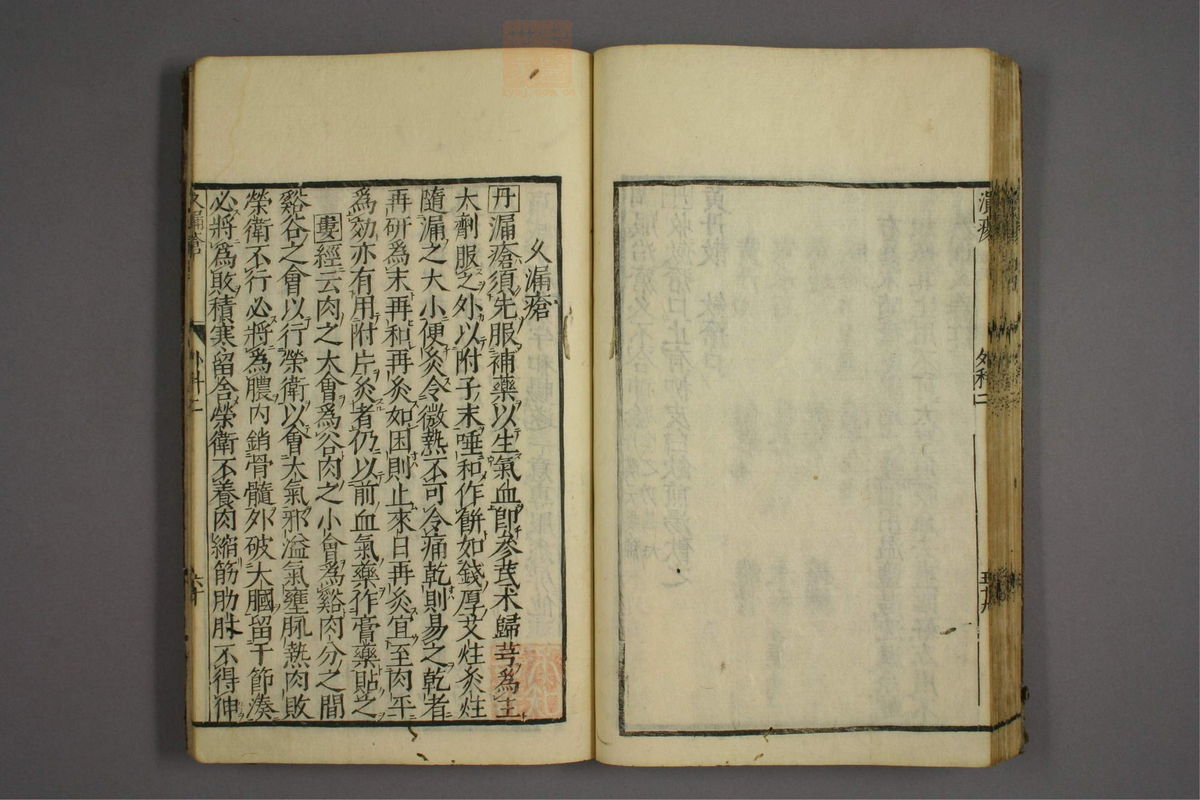 外科二
久漏瘡
丹漏瘡須先服補藥以生氣血卽參芪术歸芎為主
大劑服之外以附子末唾和作餅如錢厚艾炷灸炷
隨漏之大小便灸令微熱不可令痛乾則易之乾者
再研為末再和再灸如困則止來日再灸宜至肉平
為効亦有用附片灸者仍以前血氣藥作膏藥貼之
婁經云肉之大會為谷肉之小會為谿肉分之間
谿谷之會以行榮衛以會大氣邪溢氣壅脉熱肉敗
榮衛不行必將為膿內銷骨髓外破大膕留于節湊
必將為敗積寒留舍榮衛不養肉縮筋肋肘不得伸
久漏瘡
外科二
六十